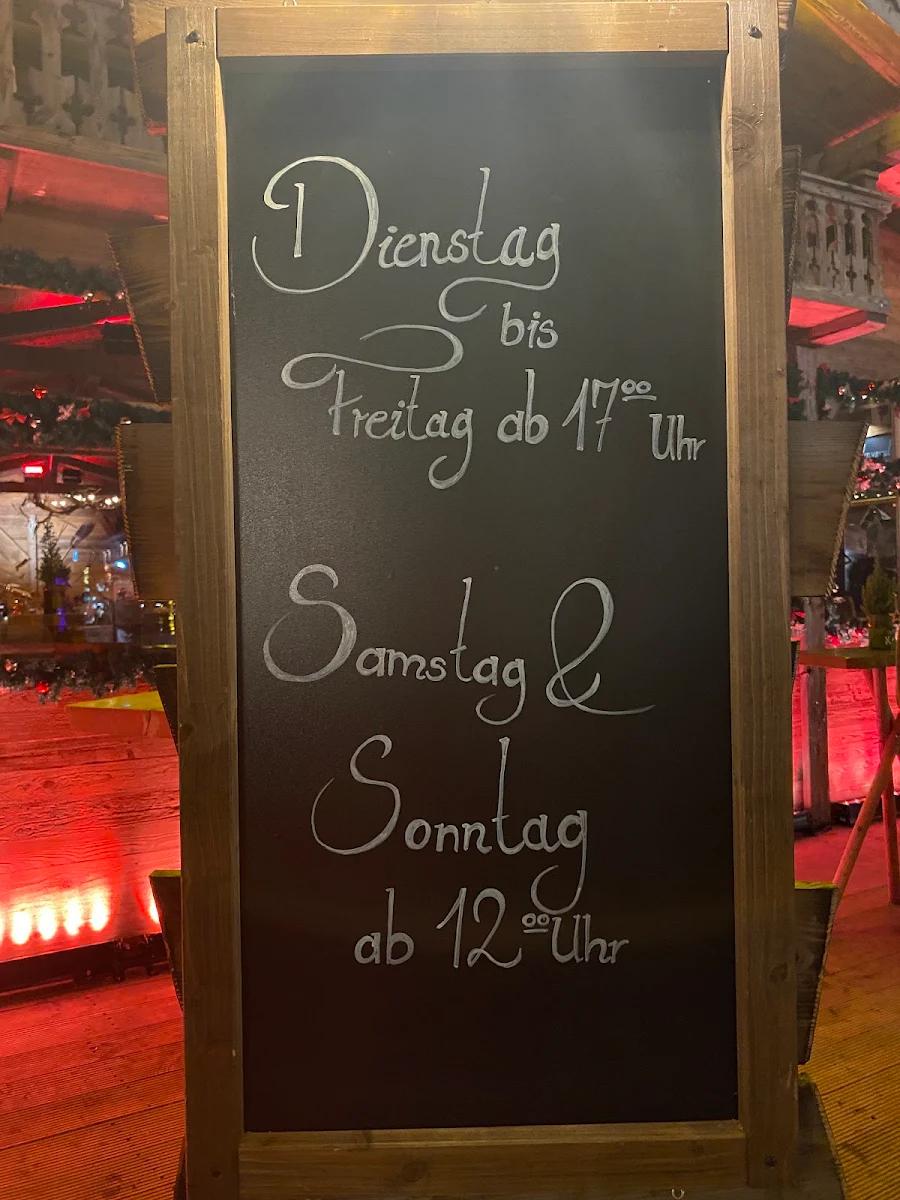 Dienstag
bis
Freitag ab 17⁰⁰ Uhr
Samstag &
Sonntag
ab 12⁰⁰ Uhr